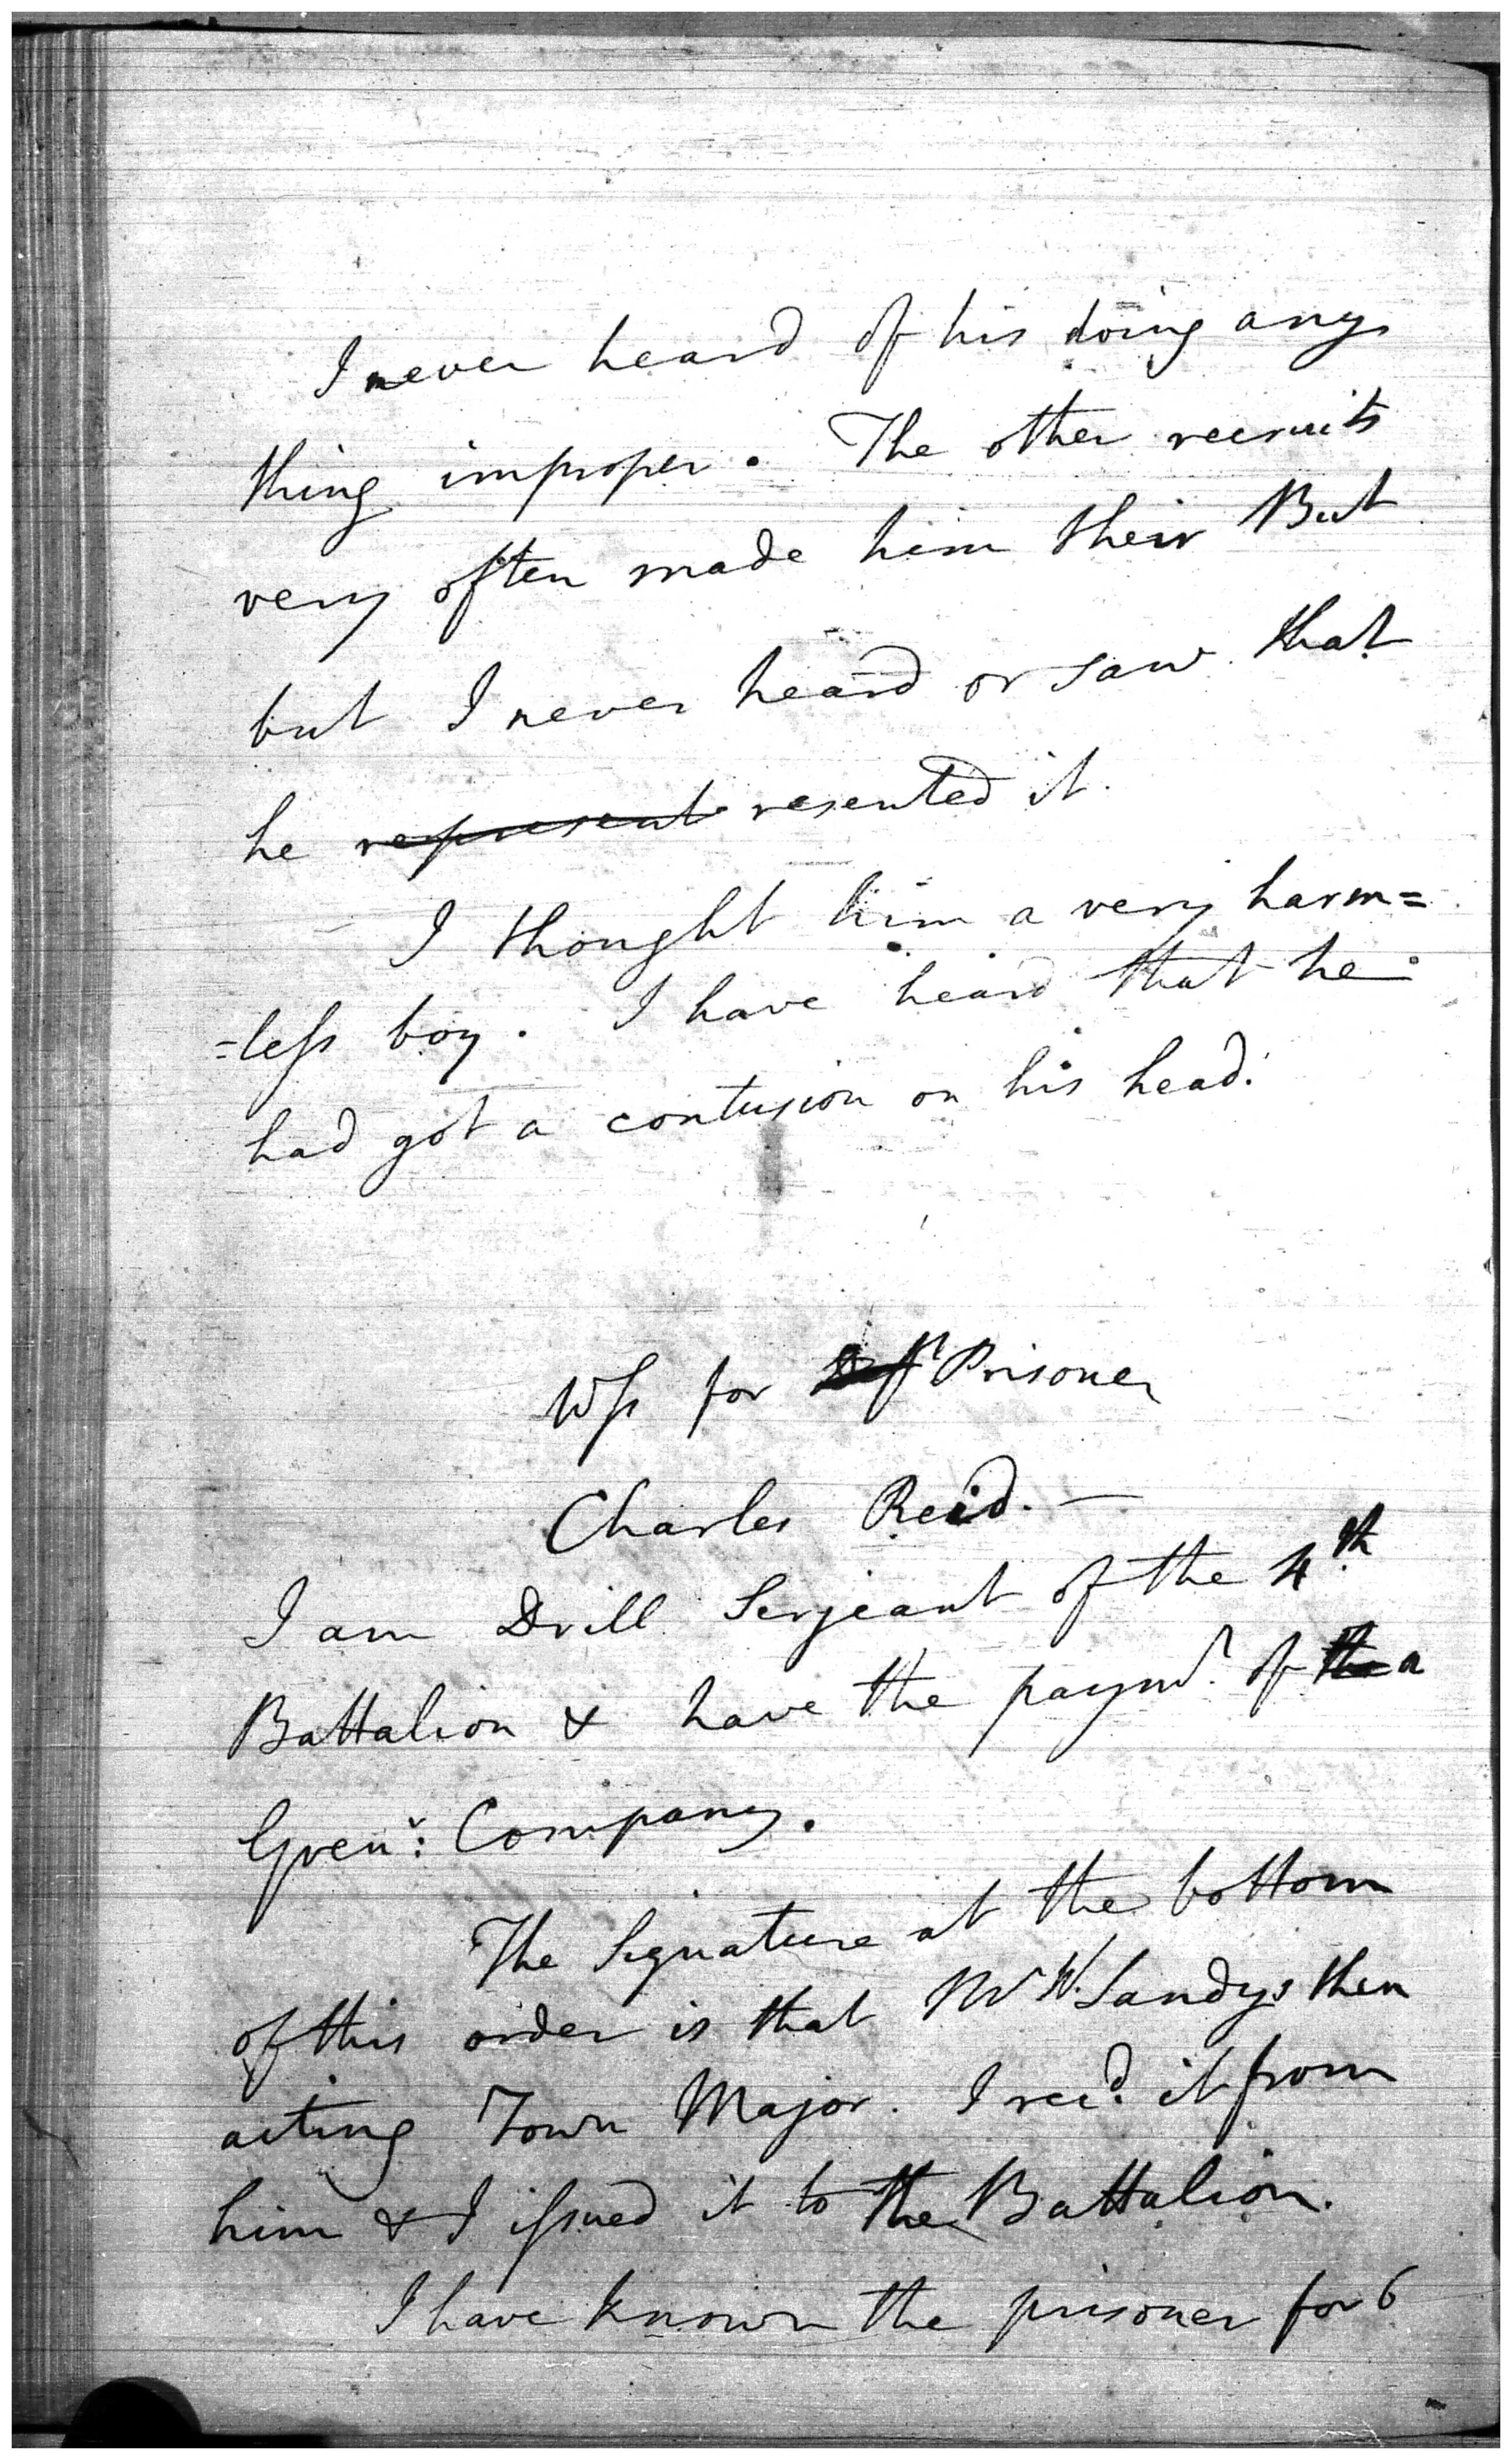 I never heard of his doing any
thing improper. The other recruits
very often made him their But
but I never heard or saw that
he represent resented it.
I thought him a very harm=
=less boy. I have heard that he
had got a contusion on his head.
Wss for Prisoner
Charles Reid. —
I am Drill Serjeant of the 4th
Battalion & have the paymt. of the a
Grenr: Company.
The Signature at the bottom
of this order is that Mr W. Sandys then
acting Town Major. I recd. it from
him & I issued it to the Battalion.
I have known the prisoner for 6